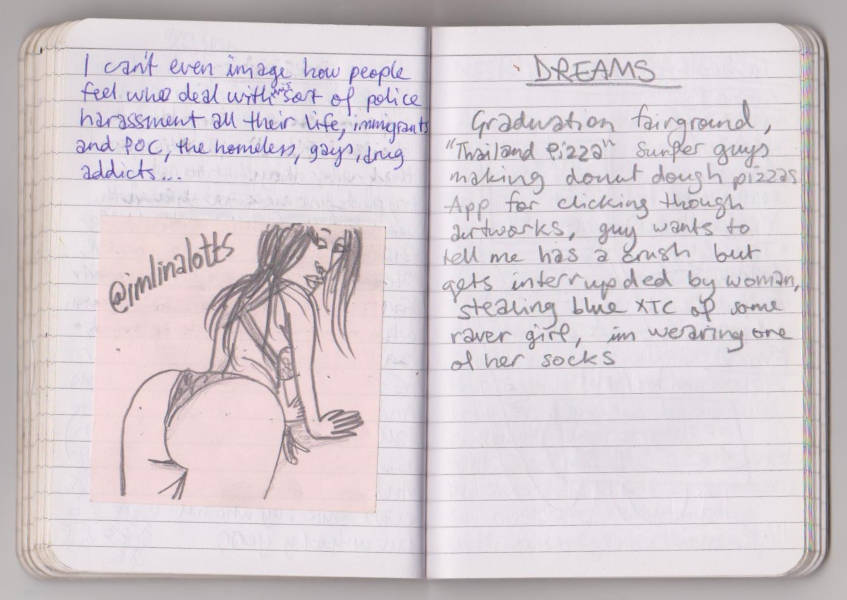 I can't even image how people
feel who deal with this sort of police
harassment all their life, immigrants
and POC, the homeless, gays, drug
addicts...
@imlinalotts
DREAMS
Graduation fairground,
"Thailand Pizza" Surfer guys
making donut dough pizzas
App for clicking though
artworks, guy wants to
tell me has a crush but
gets interrupded by woman,
stealing blue XTC of some
raver girl, im wearing one
of her socks